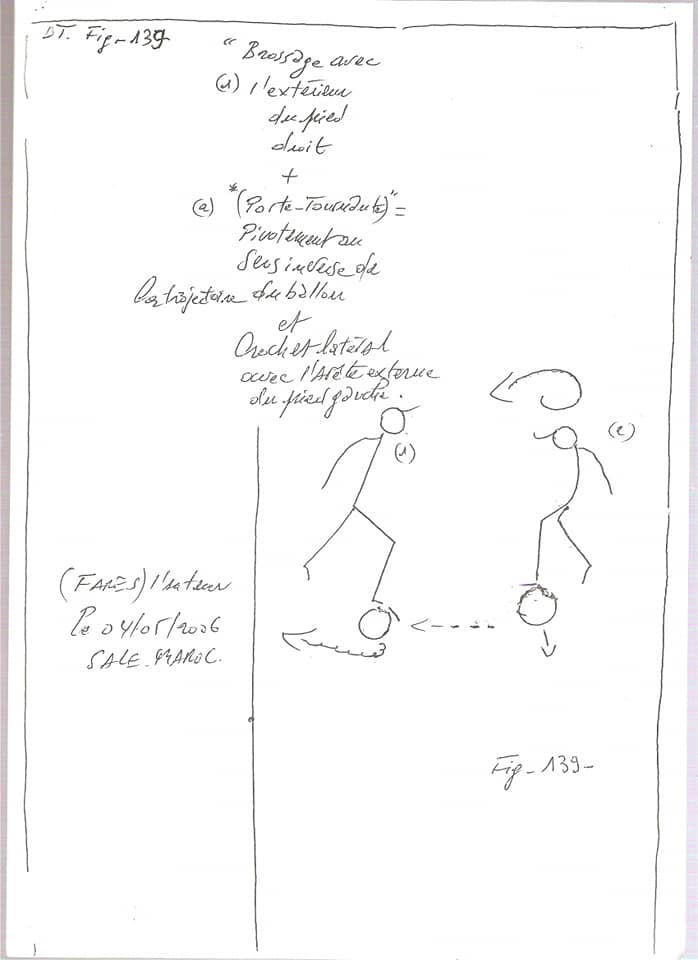 DT. Fig-139
"Brossage avec
(1) l'extérieur
du pied
droit
+
(2) *(Porte-Tournante)" =
Pivotement au
Sens inverse de
la trajectoire du ballon
et
Crochet latéral
avec l'Arête externe
du pied gauche.
(1)
(2)
(FARES) l'auteur
le 04/05/2006
SALE-MAROC.
Fig-139-